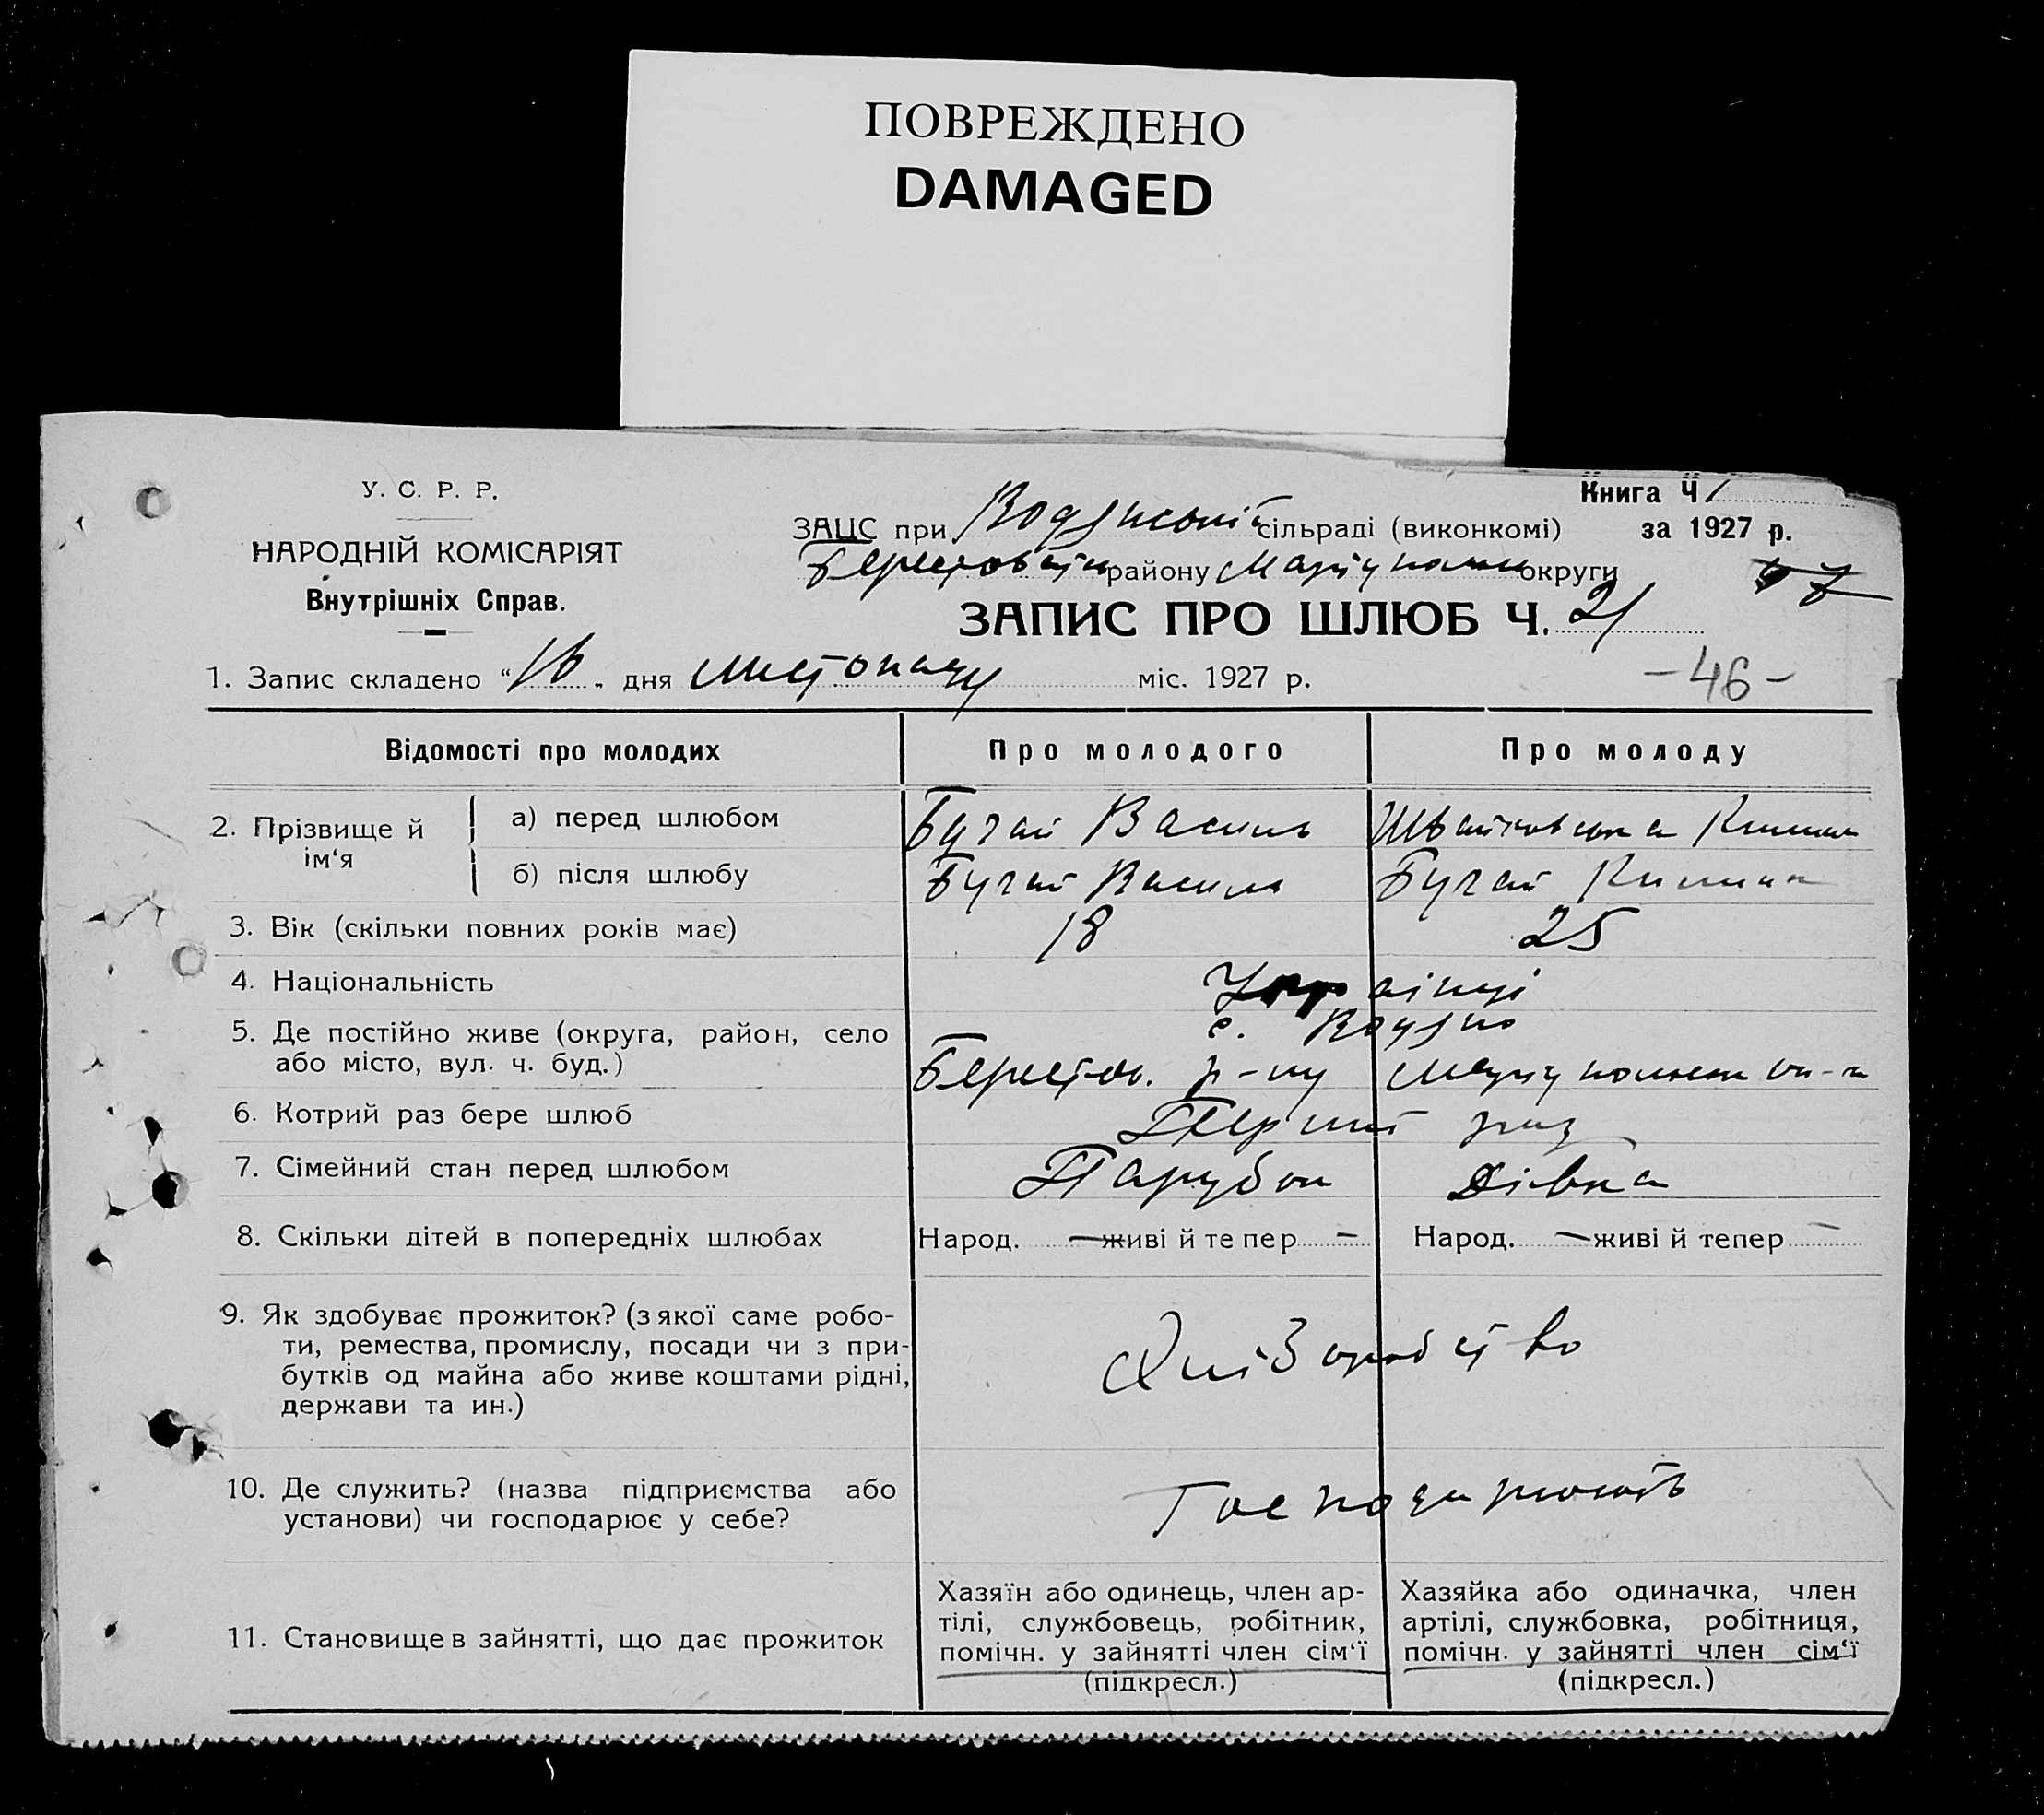 ПОВРЕЖДЕНО
DAMAGED
У. С. Р. Р.
НАРОДНІЙ КОМІСАРІЯТ
Внутрішніх Справ.
Книга Ч 1
ЗАЦС при сільраді (виконкомі)
за 1927 р.
району округи
ЗАПИС ПРО ШЛЮБ Ч. 21
1. Запис складено " " дня листопаду міс. 1927 р.
-46-
Відомості про молодих
Про молодого
Про молоду
2. Прізвище й ім‘я
а) перед шлюбом
Бугай Василь
б) після шлюбу
Бугай Василь
Бугай
3. Вік (скільки повних років має)
18
25
4. Національність
Українці
5. Де постійно живе (округа, район, село
або місто, вул. ч. буд.)
с.
Берестов. р-ну
6. Котрий раз бере шлюб
Перший раз
7. Сімейний стан перед шлюбом
Парубок
Дівка
8. Скільки дітей в попередніх шлюбах
Народ. — живі й тепер —
Народ. — живі й тепер —
9. Як здобуває прожиток? (з якої саме робо-
ти, ремества, промислу, посади чи з при-
бутків од майна або живе коштами рідні,
держави та ин.)
Хліборобство
10. Де служить? (назва підприємства або
установи) чи господарює у себе?
Господарюють
11. Становище в зайнятті, що дає прожиток
Хазяїн або одинець, член ар-
тілі, службовець, робітник,
помічн. у зайнятті член сім‘ї
(підкресл.)
Хазяйка або одиначка, член
артілі, службовка, робітниця,
помічн. у зайнятті член сім‘ї
(підкресл.)